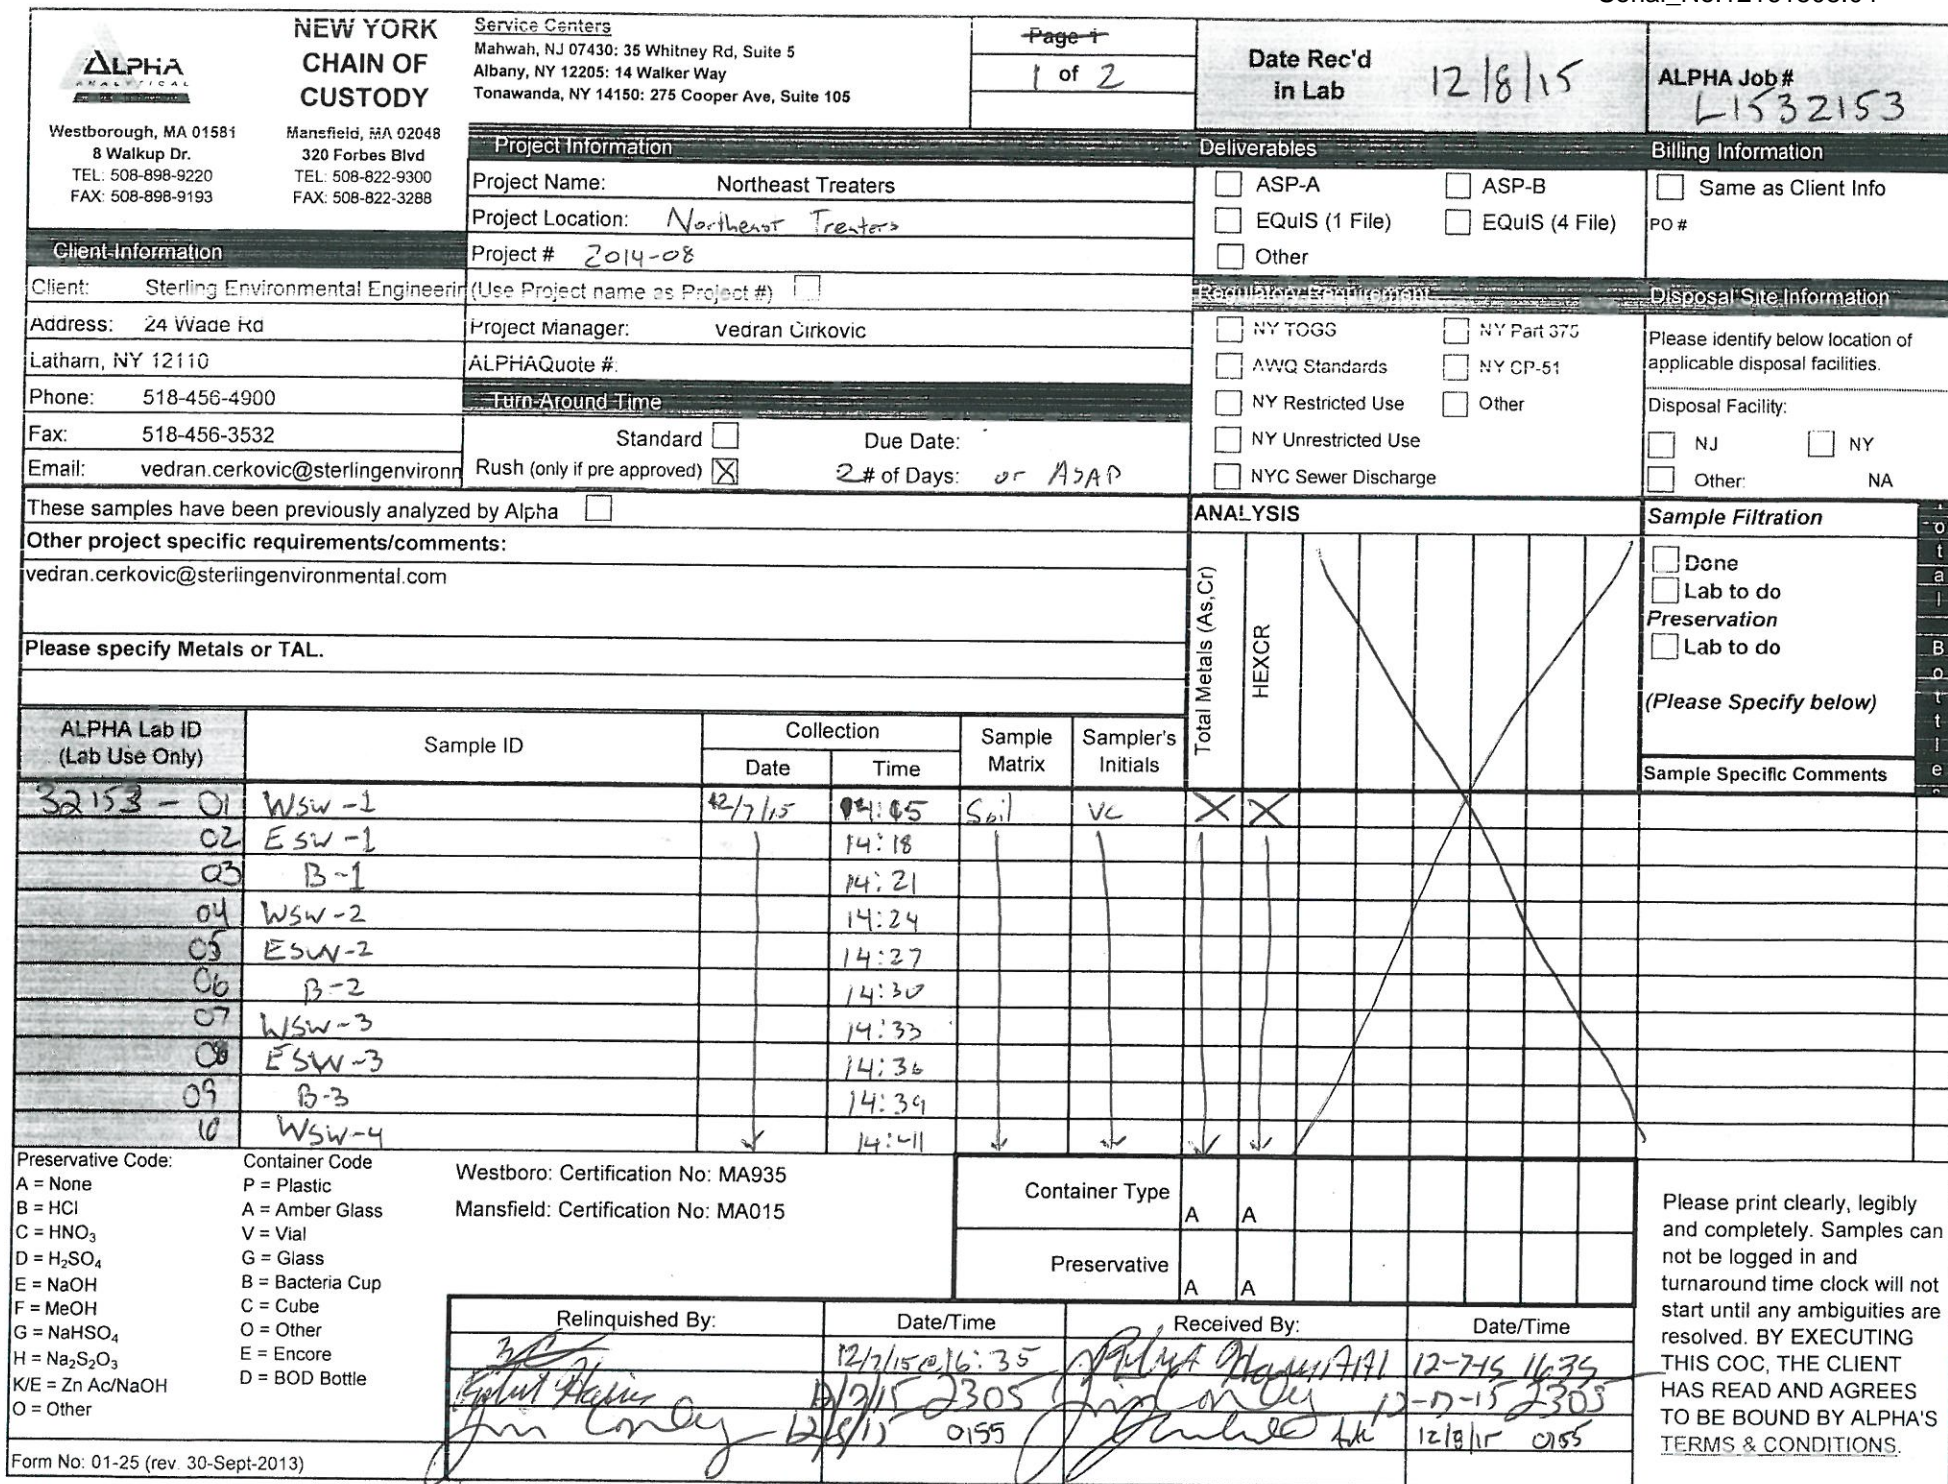 NEW YORK
CHAIN OF
CUSTODY
ALPHA
ANALYTICAL
Westborough, MA 01581
8 Walkup Dr.
TEL: 508-898-9220
FAX: 508-898-9193
Mansfield, MA 02048
320 Forbes Blvd
TEL: 508-822-9300
FAX: 508-822-3288
Service Centers
Mahwah, NJ 07430: 35 Whitney Rd, Suite 5
Albany, NY 12205: 14 Walker Way
Tonawanda, NY 14150: 275 Cooper Ave, Suite 105
Page 1
1 of 2
Date Rec'd
in Lab
12/8/15
ALPHA Job #
L1532153
Project Information
Project Name: Northeast Treaters
Project Location: Northeast Treaters
Project # 2014-08
(Use Project name as Project #)
Project Manager: Vedran Cirkovic
ALPHAQuote #:
Turn-Around Time
Standard Due Date:
Rush (only if pre approved) X 2 # of Days: or ASAP
Client Information
Client: Sterling Environmental Engineerin
Address: 24 Wade Rd
Latham, NY 12110
Phone: 518-456-4900
Fax: 518-456-3532
Email: vedran.cerkovic@sterlingenvironn
Deliverables
ASP-A ASP-B
EQuIS (1 File) EQuIS (4 File)
Other
Regulatory Requirement
NY TOGS NY Part 375
AWQ Standards NY CP-51
NY Restricted Use Other
NY Unrestricted Use
NYC Sewer Discharge
Billing Information
Same as Client Info
PO #
Disposal Site Information
Please identify below location of
applicable disposal facilities.
Disposal Facility:
NJ NY
Other: NA
These samples have been previously analyzed by Alpha
Other project specific requirements/comments:
vedran.cerkovic@sterlingenvironmental.com
Please specify Metals or TAL.
ANALYSIS
Total Metals (As,Cr)
HEXCR
Sample Filtration
Done
Lab to do
Preservation
Lab to do
(Please Specify below)
Sample Specific Comments
Total Bottle
ALPHA Lab ID
(Lab Use Only)
Sample ID
Collection
Date Time
Sample
Matrix
Sampler's
Initials
32153 - 01 WSW-1 12/7/15 14:15 Soil VC X X
02 ESW-1 14:18
03 B-1 14:21
04 WSW-2 14:24
05 ESW-2 14:27
06 B-2 14:30
07 WSW-3 14:33
08 ESW-3 14:36
09 B-3 14:39
10 WSW-4 14:41
Preservative Code:
A = None
B = HCl
C = HNO3
D = H2SO4
E = NaOH
F = MeOH
G = NaHSO4
H = Na2S2O3
K/E = Zn Ac/NaOH
O = Other
Container Code
P = Plastic
A = Amber Glass
V = Vial
G = Glass
B = Bacteria Cup
C = Cube
O = Other
E = Encore
D = BOD Bottle
Westboro: Certification No: MA935
Mansfield: Certification No: MA015
Container Type A A
Preservative A A
Relinquished By: Date/Time Received By: Date/Time
12/7/15@16:35 12-7-15 1635
12/7/15 2305 Jim Conly 2305
Jim Conly 12/8/15 0155 12/8/15 0155
Please print clearly, legibly
and completely. Samples can
not be logged in and
turnaround time clock will not
start until any ambiguities are
resolved. BY EXECUTING
THIS COC, THE CLIENT
HAS READ AND AGREES
TO BE BOUND BY ALPHA'S
TERMS & CONDITIONS.
Form No: 01-25 (rev. 30-Sept-2013)